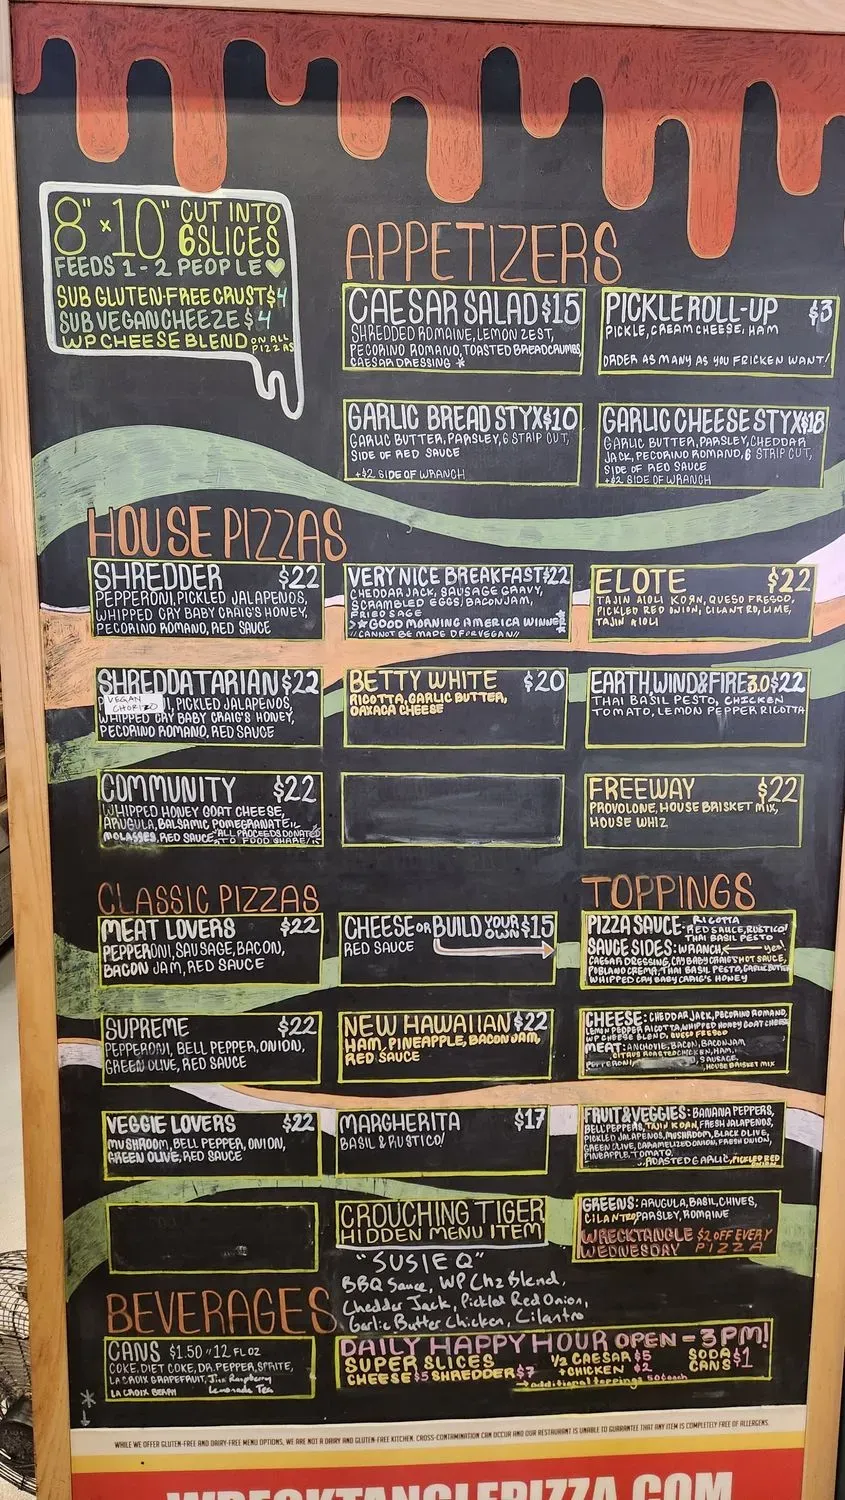 8" x 10" CUT INTO
6 SLICES
FEEDS 1-2 PEOPLE
SUB GLUTEN-FREE CRUST $4
SUB VEGAN CHEEZE $4
WP CHEESE BLEND ON ALL PIZZAS
APPETIZERS
CAESAR SALAD $15
SHREDDED ROMAINE, LEMON ZEST,
PECORINO ROMANO, TOASTED BREADCRUMBS,
CAESAR DRESSING *
PICKLE ROLL-UP $3
PICKLE, CREAM CHEESE, HAM
ORDER AS MANY AS YOU FRICKEN WANT!
GARLIC BREAD STYX $10
GARLIC BUTTER, PARSLEY, 6 STRIP CUT,
SIDE OF RED SAUCE
+$2 SIDE OF WRANCH
GARLIC CHEESE STYX $18
GARLIC BUTTER, PARSLEY, CHEDDAR
JACK, PECORINO ROMANO, 6 STRIP CUT,
SIDE OF RED SAUCE
+$2 SIDE OF WRANCH
HOUSE PIZZAS
SHREDDER $22
PEPPERONI, PICKLED JALAPENOS,
WHIPPED CRY BABY CRAIG'S HONEY,
PECORINO ROMANO, RED SAUCE
VERY NICE BREAKFAST $22
CHEDDAR JACK, SAUSAGE GRAVY,
SCRAMBLED EGGS, BACON JAM,
FRIED SAGE
>★GOOD MORNING AMERICA WINNER
//CANNOT BE MADE DF OR VEGAN//
ELOTE $22
TAJIN AIOLI KORN, QUESO FRESCO,
PICKLED RED ONION, CILANTRO, LIME,
TAJIN AIOLI
SHREDDATARIAN $22
VEGAN
CHORIZO
PICKLED JALAPENOS,
WHIPPED CRY BABY CRAIG'S HONEY,
PECORINO ROMANO, RED SAUCE
BETTY WHITE $20
RICOTTA, GARLIC BUTTER,
OAXACA CHEESE
EARTH, WIND & FIRE 3.0 $22
THAI BASIL PESTO, CHICKEN
TOMATO, LEMON PEPPER RICOTTA
COMMUNITY $22
WHIPPED HONEY GOAT CHEESE,
ARUGULA, BALSAMIC POMEGRANATE
MOLASSES, RED SAUCE *ALL PROCEEDS DONATED
TO FOOD SHARE
FREEWAY $22
PROVOLONE, HOUSE BRISKET MIX,
HOUSE WHIZ
CLASSIC PIZZAS
MEAT LOVERS $22
PEPPERONI, SAUSAGE, BACON,
BACON JAM, RED SAUCE
CHEESE OR BUILD YOUR OWN $15
RED SAUCE
SUPREME $22
PEPPERONI, BELL PEPPER, ONION,
GREEN OLIVE, RED SAUCE
NEW HAWAIIAN $22
HAM, PINEAPPLE, BACON JAM,
RED SAUCE
VEGGIE LOVERS $22
MUSHROOM, BELL PEPPER, ONION,
GREEN OLIVE, RED SAUCE
MARGHERITA $17
BASIL & RUSTICO!
TOPPINGS
PIZZA SAUCE- RICOTTA
RED SAUCE, RUSTICO!
THAI BASIL PESTO
SAUCE SIDES: WRANCH yes!
CAESAR DRESSING, CRY BABY CRAIG'S HOT SAUCE,
POBLANO CREMA, THAI BASIL PESTO, GARLIC BUTTER
WHIPPED CRY BABY CRAIG'S HONEY
CHEESE: CHEDDAR JACK, PECORINO ROMANO,
LEMON PEPPER RICOTTA, WHIPPED HONEY GOAT CHEESE
WP CHEESE BLEND, QUESO FRESCO
MEAT: ANCHOVIE, BACON, BACON JAM
CITRUS ROASTED CHICKEN, HAM,
PEPPERONI, SAUSAGE,
HOUSE BRISKET MIX
FRUIT & VEGGIES: BANANA PEPPERS,
BELL PEPPERS, TAJIN KORN, FRESH JALAPENOS,
PICKLED JALAPENOS, MUSHROOM, BLACK OLIVE,
GREEN OLIVE, CARAMELIZED ONION, FRESH ONION,
PINEAPPLE, TOMATO,
ROASTED GARLIC, PICKLED RED ONION
GREENS: ARUGULA, BASIL, CHIVES,
CILANTRO, PARSLEY, ROMAINE
WRECKTANGLE $2 OFF EVERY
WEDNESDAY PIZZA
CROUCHING TIGER
HIDDEN MENU ITEM
"SUSIE Q"
BBQ Sauce, WP Chz Blend,
Cheddar Jack, Pickled Red Onion,
Garlic Butter Chicken, Cilantro
BEVERAGES
CANS $1.50 // 12 FL OZ
COKE, DIET COKE, DR. PEPPER, SPRITE,
LA CROIX GRAPEFRUIT, Raspberry
LA CROIX BERRY Lemonade Tea
DAILY HAPPY HOUR OPEN - 3 PM!
SUPER SLICES
CHEESE $5 SHREDDER $7
1/2 CAESAR $5
+CHICKEN $2
SODA
CANS $1
additional toppings 50¢ each
WHILE WE OFFER GLUTEN-FREE AND DAIRY-FREE MENU OPTIONS, WE ARE NOT A DAIRY AND GLUTEN-FREE KITCHEN. CROSS-CONTAMINATION CAN OCCUR AND OUR RESTAURANT IS UNABLE TO GUARANTEE THAT ANY ITEM IS COMPLETELY FREE OF ALLERGENS.
WRECKTANGLEPIZZA.COM